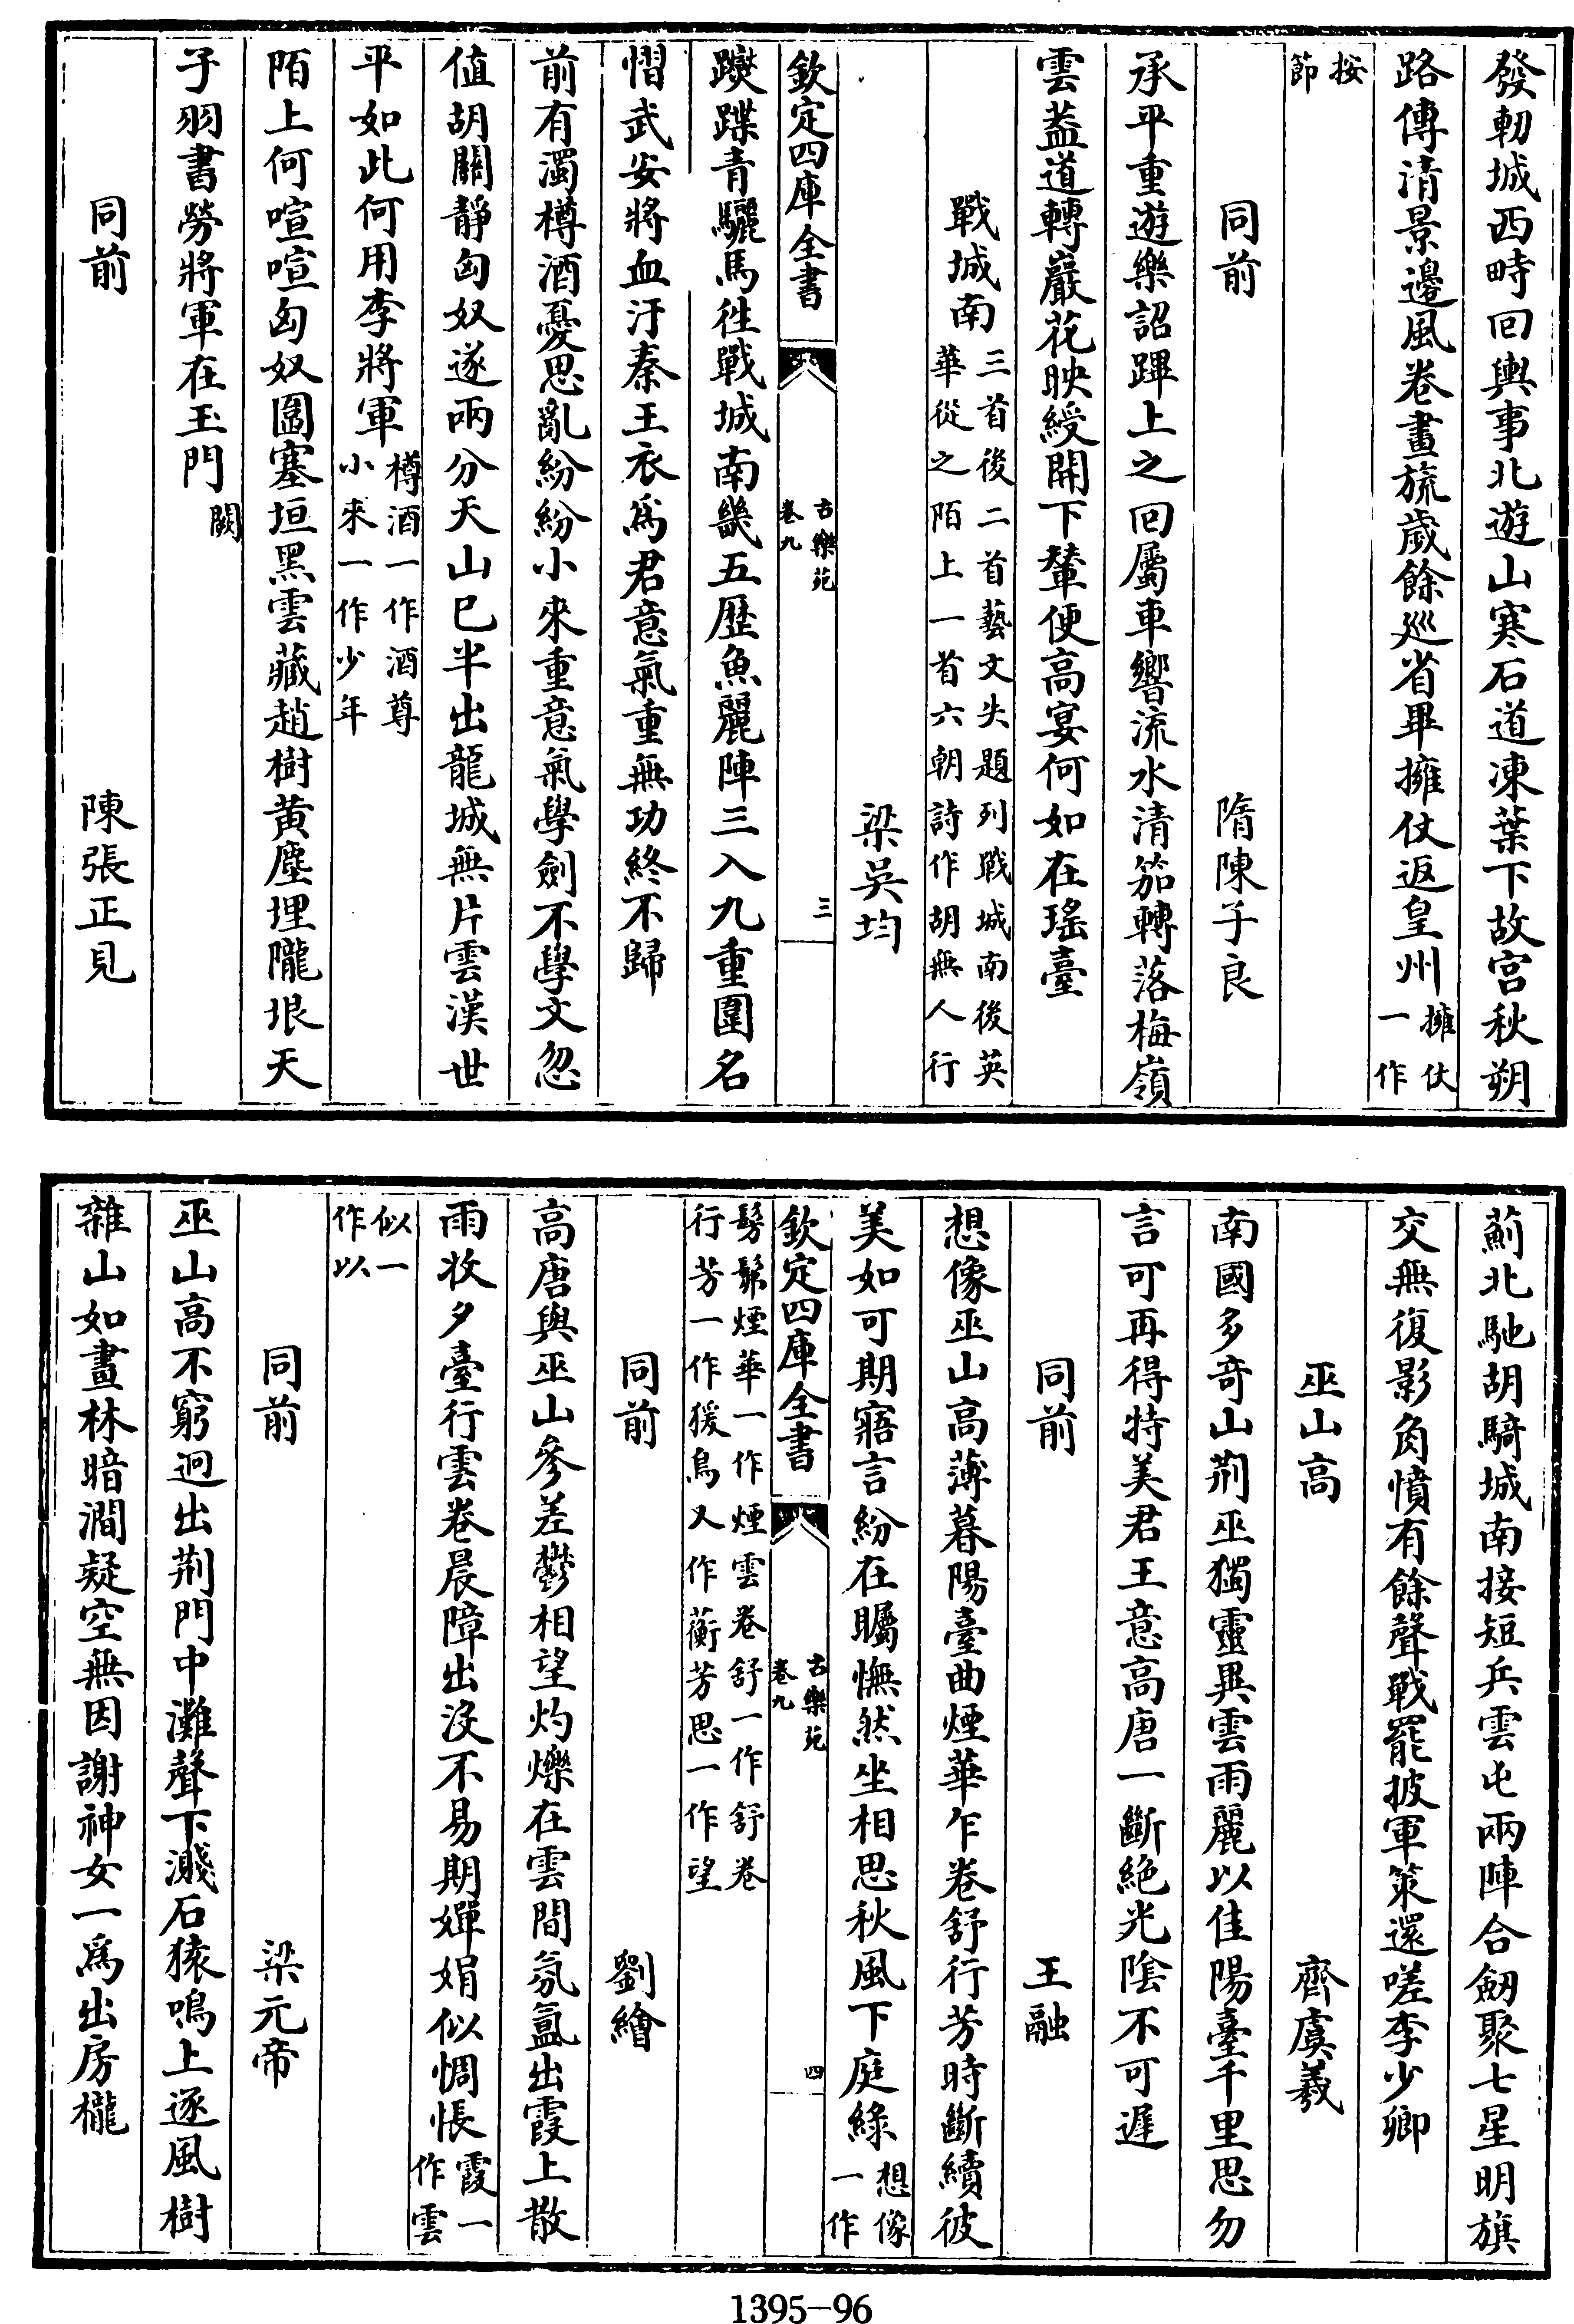 發軔城西畤回輿事北遊山寒石道凍葉下故宫秋朔
路傳清景邊風卷畫旒歲餘廵省畢擁仗返皇州擁仗一作
按節
同前　隋陳子良
承平重遊樂詔蹕上之回屬車響流水清笳轉落梅嶺
雲葢道轉巖花映綬開下輦便高宴何如在瑤臺
戰城南三首後二首藝文失題列戰城南後英
華從之陌上一首六朝詩作胡無人行
梁吳均
欽定四庫全書　古樂苑 卷九　三
躞蹀青驪馬徃戰城南畿五歴魚麗陣三入九重圍名
慴武安將血汙秦王衣爲君意氣重無功終不歸
前有濁樽酒憂思亂紛紛小來重意氣學劍不學文忽
值胡關靜匈奴遂兩分天山已半出龍城無片雲漢世
平如此何用李將軍樽酒一作酒尊
小來一作少年
陌上何喧喧匈奴圍塞垣黑雲藏趙樹黄塵埋隴垠天
子羽書勞將軍在玉門闕
同前　陳張正見
薊北馳胡騎城南接短兵雲屯兩陣合劒聚七星明旗
交無復影角憤有餘聲戰罷披軍策還嗟李少卿
巫山高　齊虞羲
南國多奇山荆巫獨靈異雲雨麗以佳陽臺千里思勿
言可再得特美君王意高唐一斷絶光陰不可遲
同前　王融
想像巫山高薄暮陽臺曲煙華乍卷舒行芳時斷續彼
美如可期寤言紛在矚憮然坐相思秋風下庭綠想像一作
欽定四庫全書　古樂苑 卷九　四
髣髴煙華一作煙雲卷舒一作舒卷
行芳一作猨鳥又作蘅芳思一作望
同前　劉繪
高唐與巫山參差鬱相望灼爍在雲間氛氲出霞上散
雨收夕臺行雲卷晨障出沒不易期嬋娟似惆悵霞一作雲
似一作以
同前　梁元帝
巫山高不窮迥出荆門中灘聲下濺石猿鳴上逐風樹
雜山如畫林暗澗疑空無因謝神女一爲出房櫳
1395-96